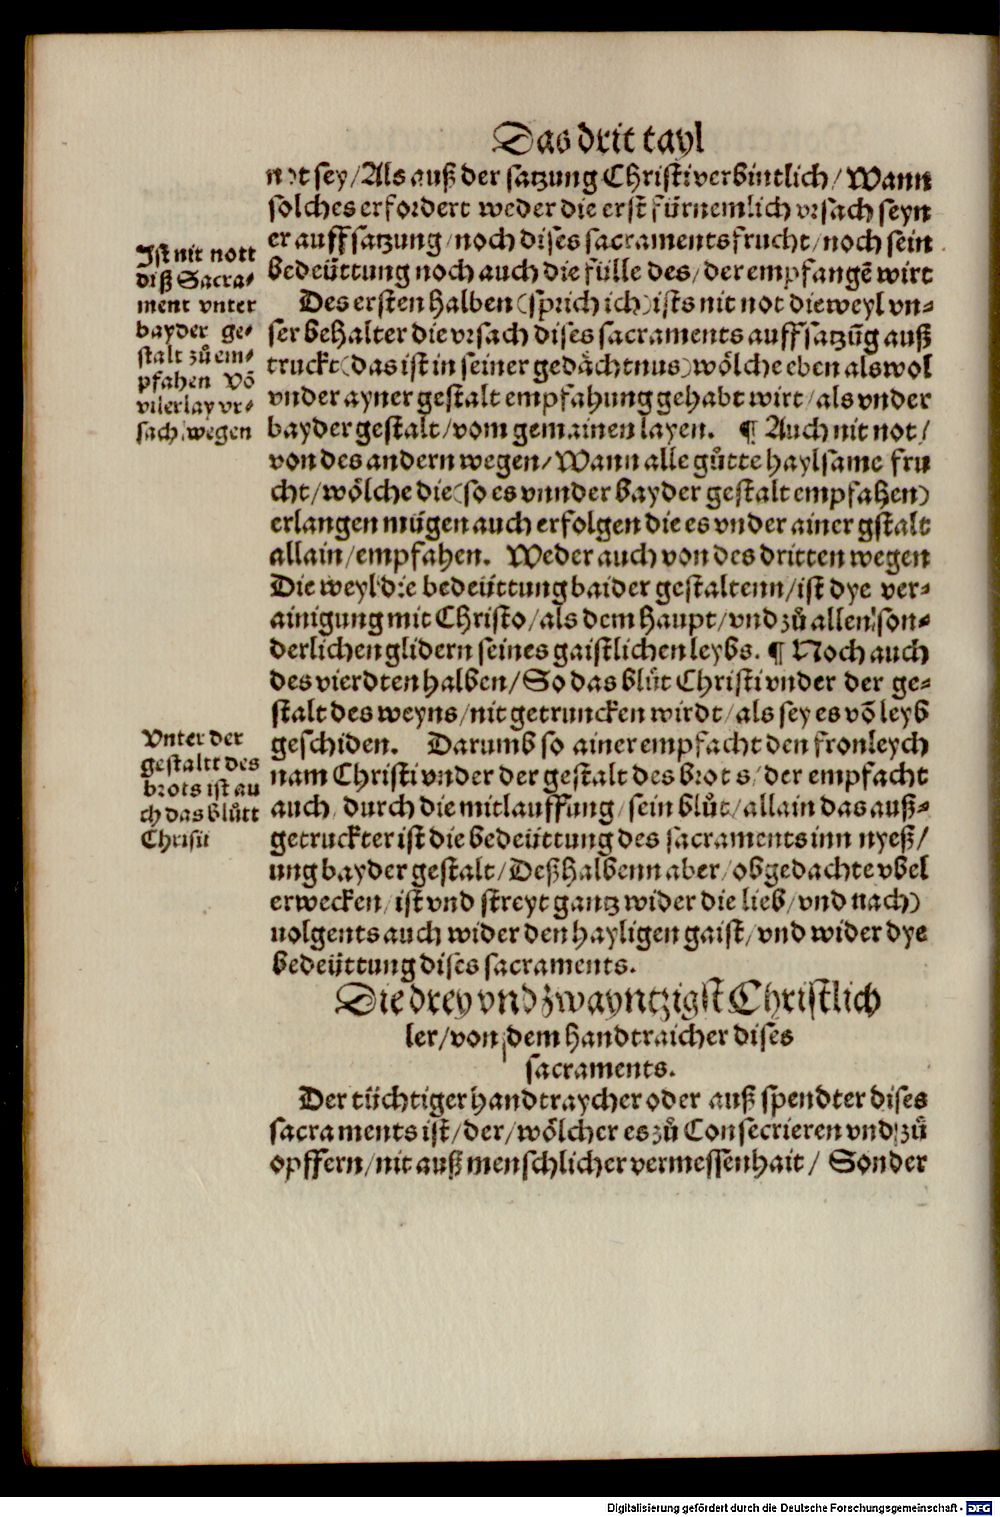 Das drit tayl
not sey/Als auß der satzung Christi verbintlich/Wann
solches erfordert weder die erst fürnemlich vrsach seyn
er auffsatzung/noch dises sacraments frucht/noch sein
bedeüttung noch auch die fülle des/der empfangē wirt
Des ersten halben(sprich ich)ists nit not dieweyl vn⸗
ser behalter die vrsach dises sacraments auffsatzūg auß
truckt(das ist in seiner gedächtnus)wölche eben als wol
vnder ayner gestalt empfahung gehabt wirt/als vnder
bayder gestalt/vom gemainen layen. ¶ Auch nit not/
von des andern wegen/Wann alle gůtte haylsame fru
cht/wölche die(so es vnnder bayder gestalt empfahen)
erlangen mügen auch erfolgen die es vnder ainer gstalt
allain/empfahen. Weder auch von des dritten wegen
Die weyl die bedeüttung baider gestaltenn/ist dye ver⸗
ainigung mit Christo/als dem haupt/vnd zů allen son⸗
derlichen glidern seines gaistlichen leybs. ¶ Noch auch
des vierdten halben/So das blůt Christi vnder der ge⸗
stalt des weyns/nit getruncken wirdt/als sey es vō leyb
geschiden. Darumb so ainer empfacht den fronleych
nam Christi vnder der gestalt des brots/der empfacht
auch/durch die mitlauffung/sein blůt/allain das auß⸗
getruckter ist die bedeüttung des sacraments inn nyeß/
ung bayder gestalt/Deßhalbenn aber/obgedachte vbel
erwecken/ist vnd streyt gantz wider die lieb/vnd nach)
uolgents auch wider den hayligen gaist/vnd wider dye
bedeüttung dises sacraments.
Die drey vnd zwayntzigst Christlich
ler/von dem handtraicher dises
sacraments.
Der tüchtiger handtraycher oder auß spendter dises
sacraments ist/der/wölcher es zů Consecrieren vnd zů
opffern/nit auß menschlicher vermessenhait/ Sonder
Ist nit nott
diß Sacra⸗
ment vnter
bayder ge⸗
stalt zů em⸗
pfahen vō
vilerlay vr⸗
sach wegen
Vnter der
gestaltt des
brots ist au
ch das blůtt
Christi
Digitalisierung gefördert durch die Deutsche Forschungsgemeinschaft - DFG